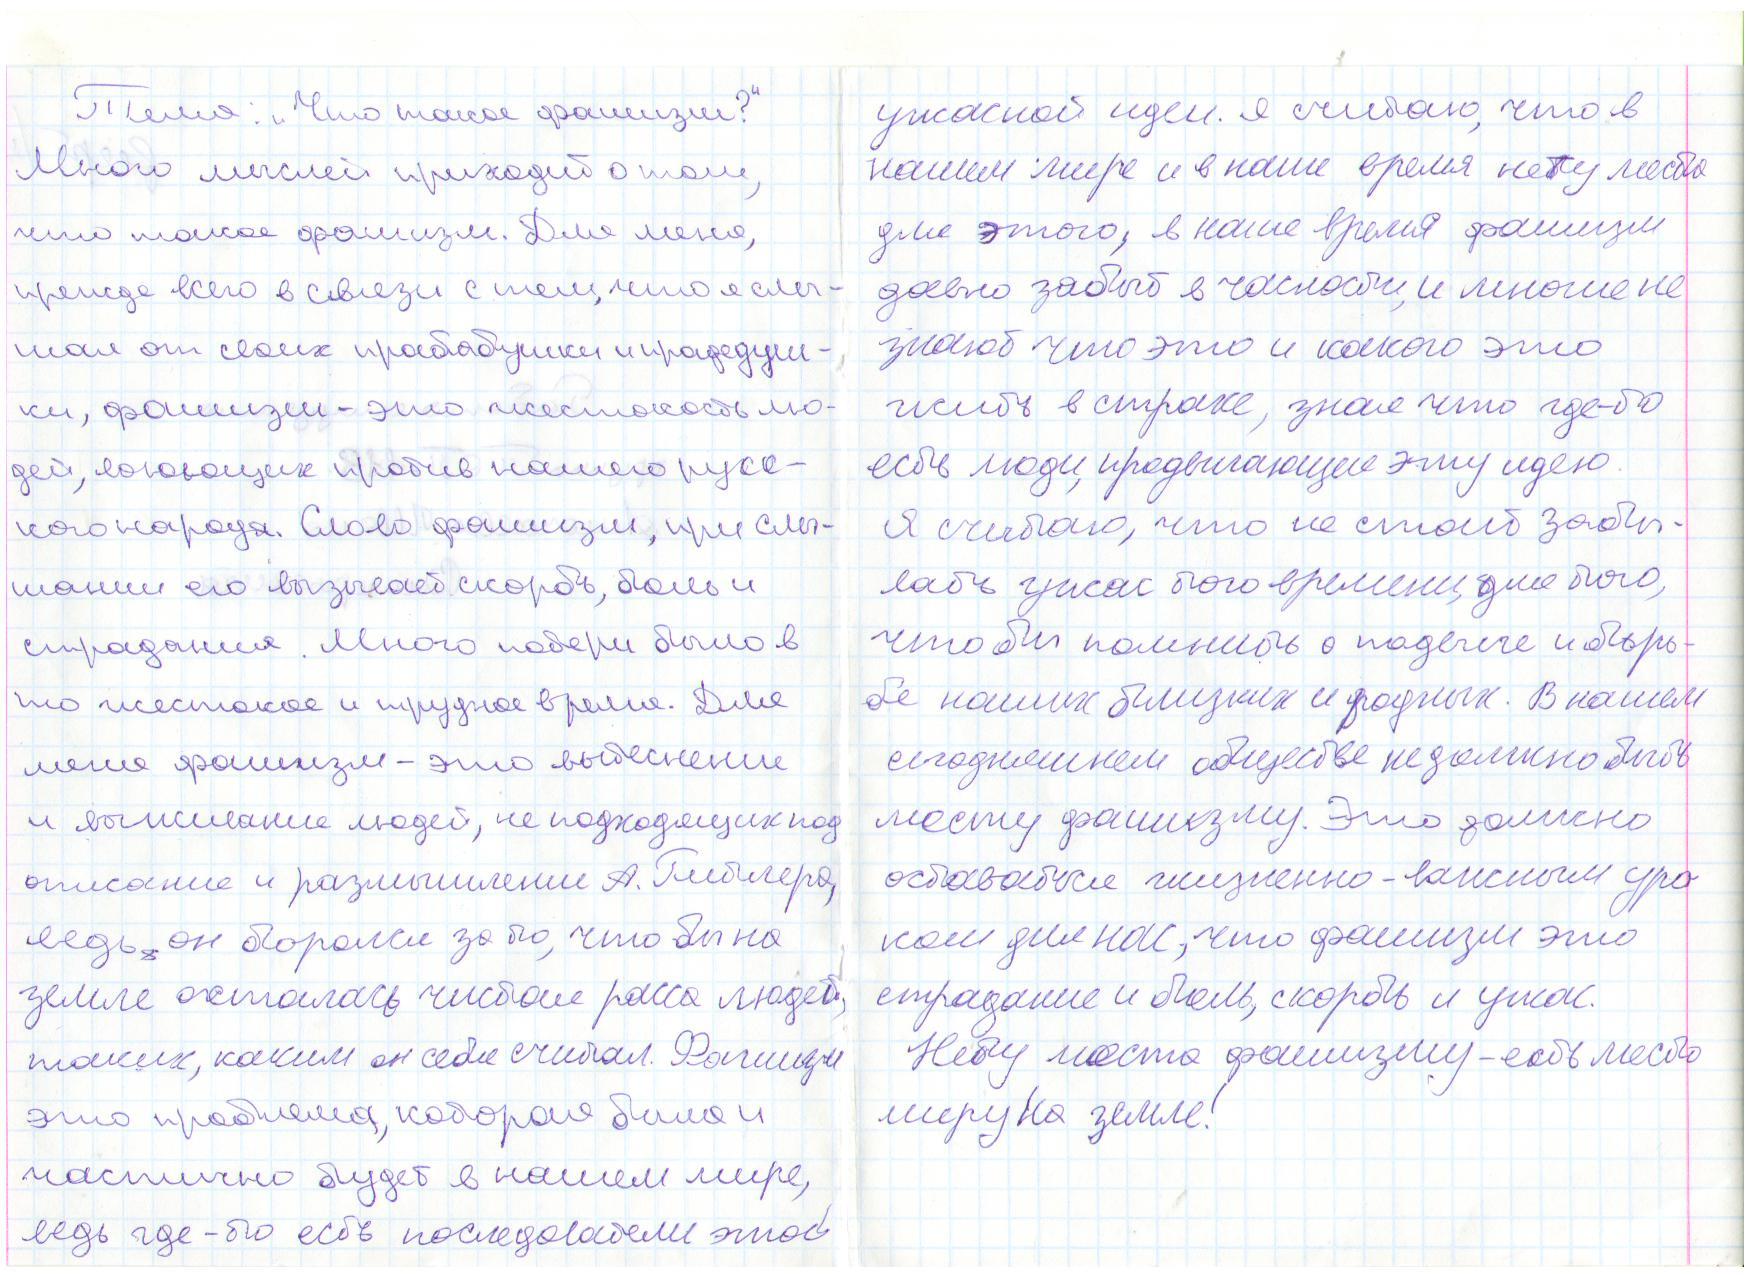 Тема: „Что такое фашизм?“
Много мыслей приходит о том,
что такое фашизм. Для меня,
прежде всего в связи с тем, что я слы-
шал от своих прабабушки и прадедуш-
ки, фашизм - это жестокость лю-
дей, воюющих против нашего русс-
кого народа. Слово фашизм, при слы-
шании его вызывает скорбь, боль и
страдания. Много потерь было в
то жестокое и трудное время. Для
меня фашизм - это вытеснение
и выживание людей, не подходящих под
описание и размышлении А. Гитлера,
ведь он боролся за то, что бы на
земле осталась чистая раса людей,
таких, каким он себя считал. Фашизм
это проблема, которая была и
частично будет в нашем мире,
ведь где-то есть последователи этой
ужасной идеи. Я считаю, что в
нашем мире и в наше время нету места
для этого, в наше время фашизм
давно забыт в часности, и многие не
знают что это и какого это
жить в страхе, зная что где-то
есть люди, продвигающие эту идею.
Я считаю, что не стоит забы-
вать ужас того времени, для того,
что бы помнить о подвиге и борь-
бе наших близких и родных. В нашем
сегодняшнем обществе не должно быть
месту фашизму. Это должно
оставаться жизненно-важным уро
ком для нас, что фашизм это
страдание и боль, скорбь и ужас.
Нету места фашизму - есть место
миру на земле!